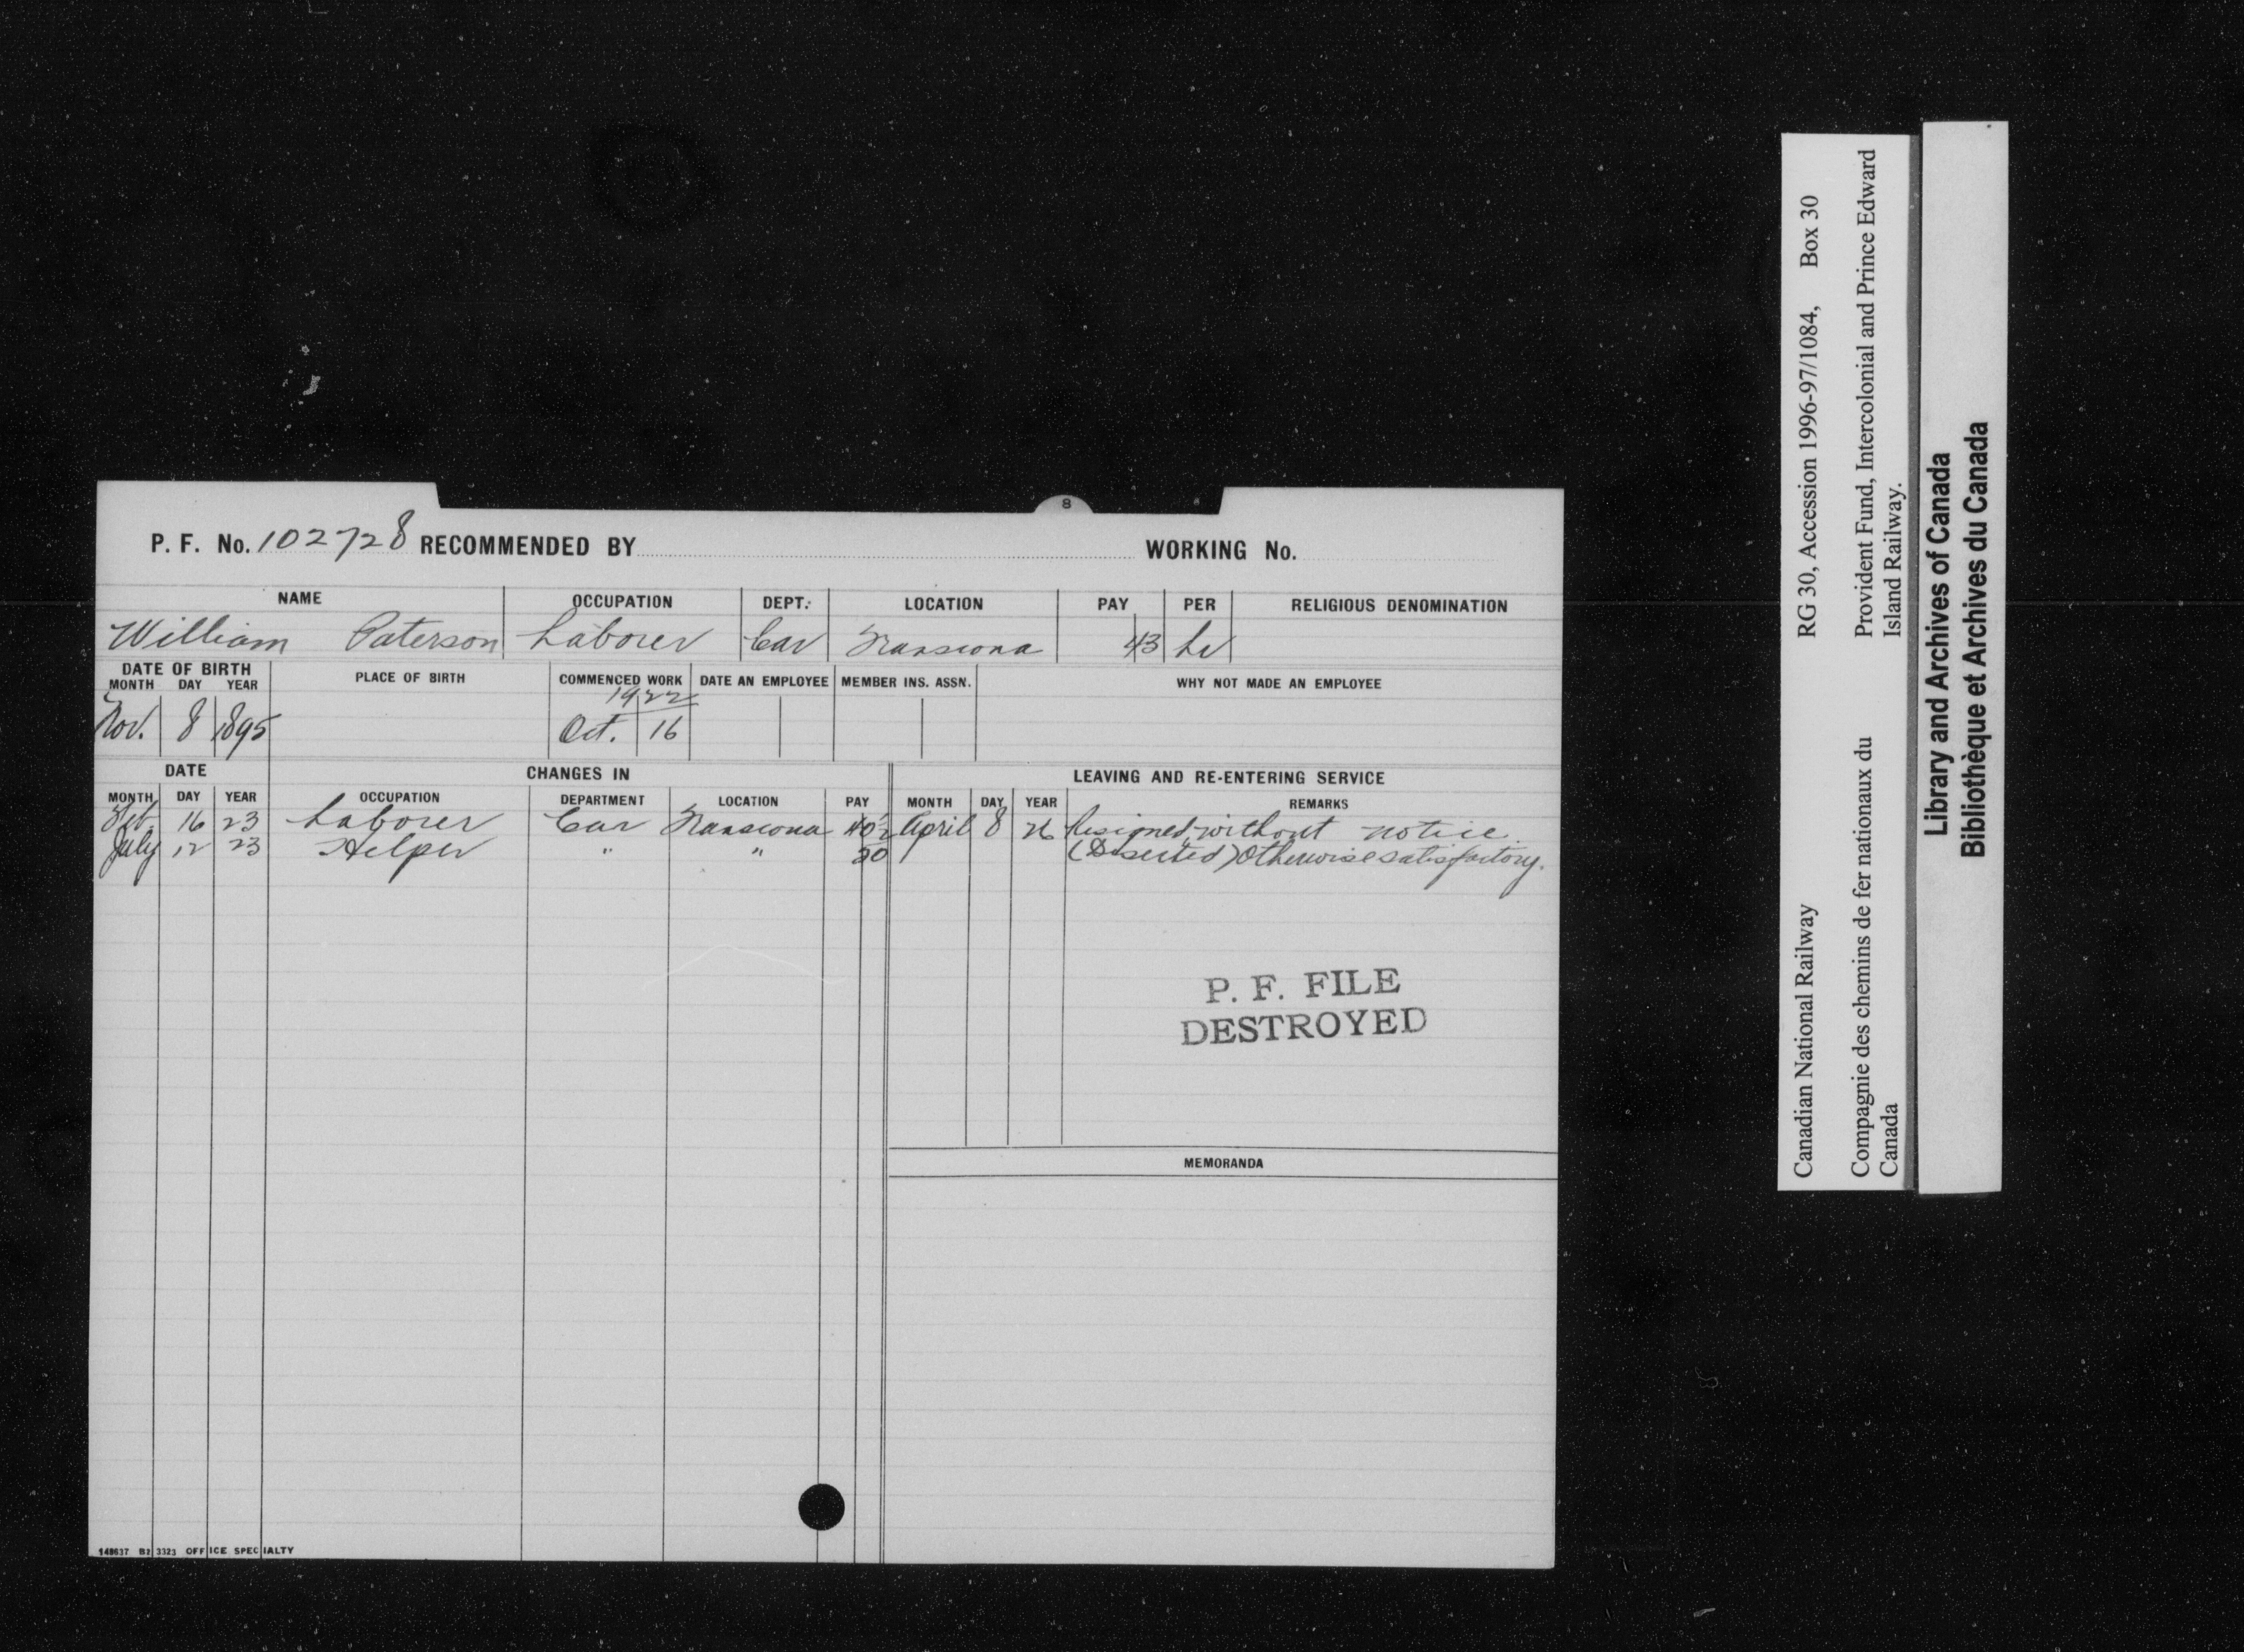 8
P. F. No. 102728 RECOMMENDED BY WORKING No.
NAME OCCUPATION DEPT. LOCATION PAY PER RELIGIOUS DENOMINATION
William Paterson Laborer Car Transcona 43 hr
DATE OF BIRTH PLACE OF BIRTH COMMENCED WORK DATE AN EMPLOYEE MEMBER INS. ASSN. WHY NOT MADE AN EMPLOYEE
MONTH DAY YEAR
1922
Nov. 8 1895 Oct. 16
DATE CHANGES IN LEAVING AND RE-ENTERING SERVICE
MONTH DAY YEAR OCCUPATION DEPARTMENT LOCATION PAY MONTH DAY YEAR REMARKS
Feb 16 23 Laborer Car Transcona 40½ April 8 26 Resigned without notice
July 12 23 Helper " " 50 (Deserted) Otherwise satisfactory.
P. F. FILE
DESTROYED
MEMORANDA
148637 B2 3323 OFFICE SPECIALTY
Canadian National Railway RG 30, Accession 1996-97/1084, Box 30
Compagnie des chemins de fer nationaux du
Canada
Provident Fund, Intercolonial and Prince Edward
Island Railway.
Library and Archives of Canada
Bibliothèque et Archives du Canada